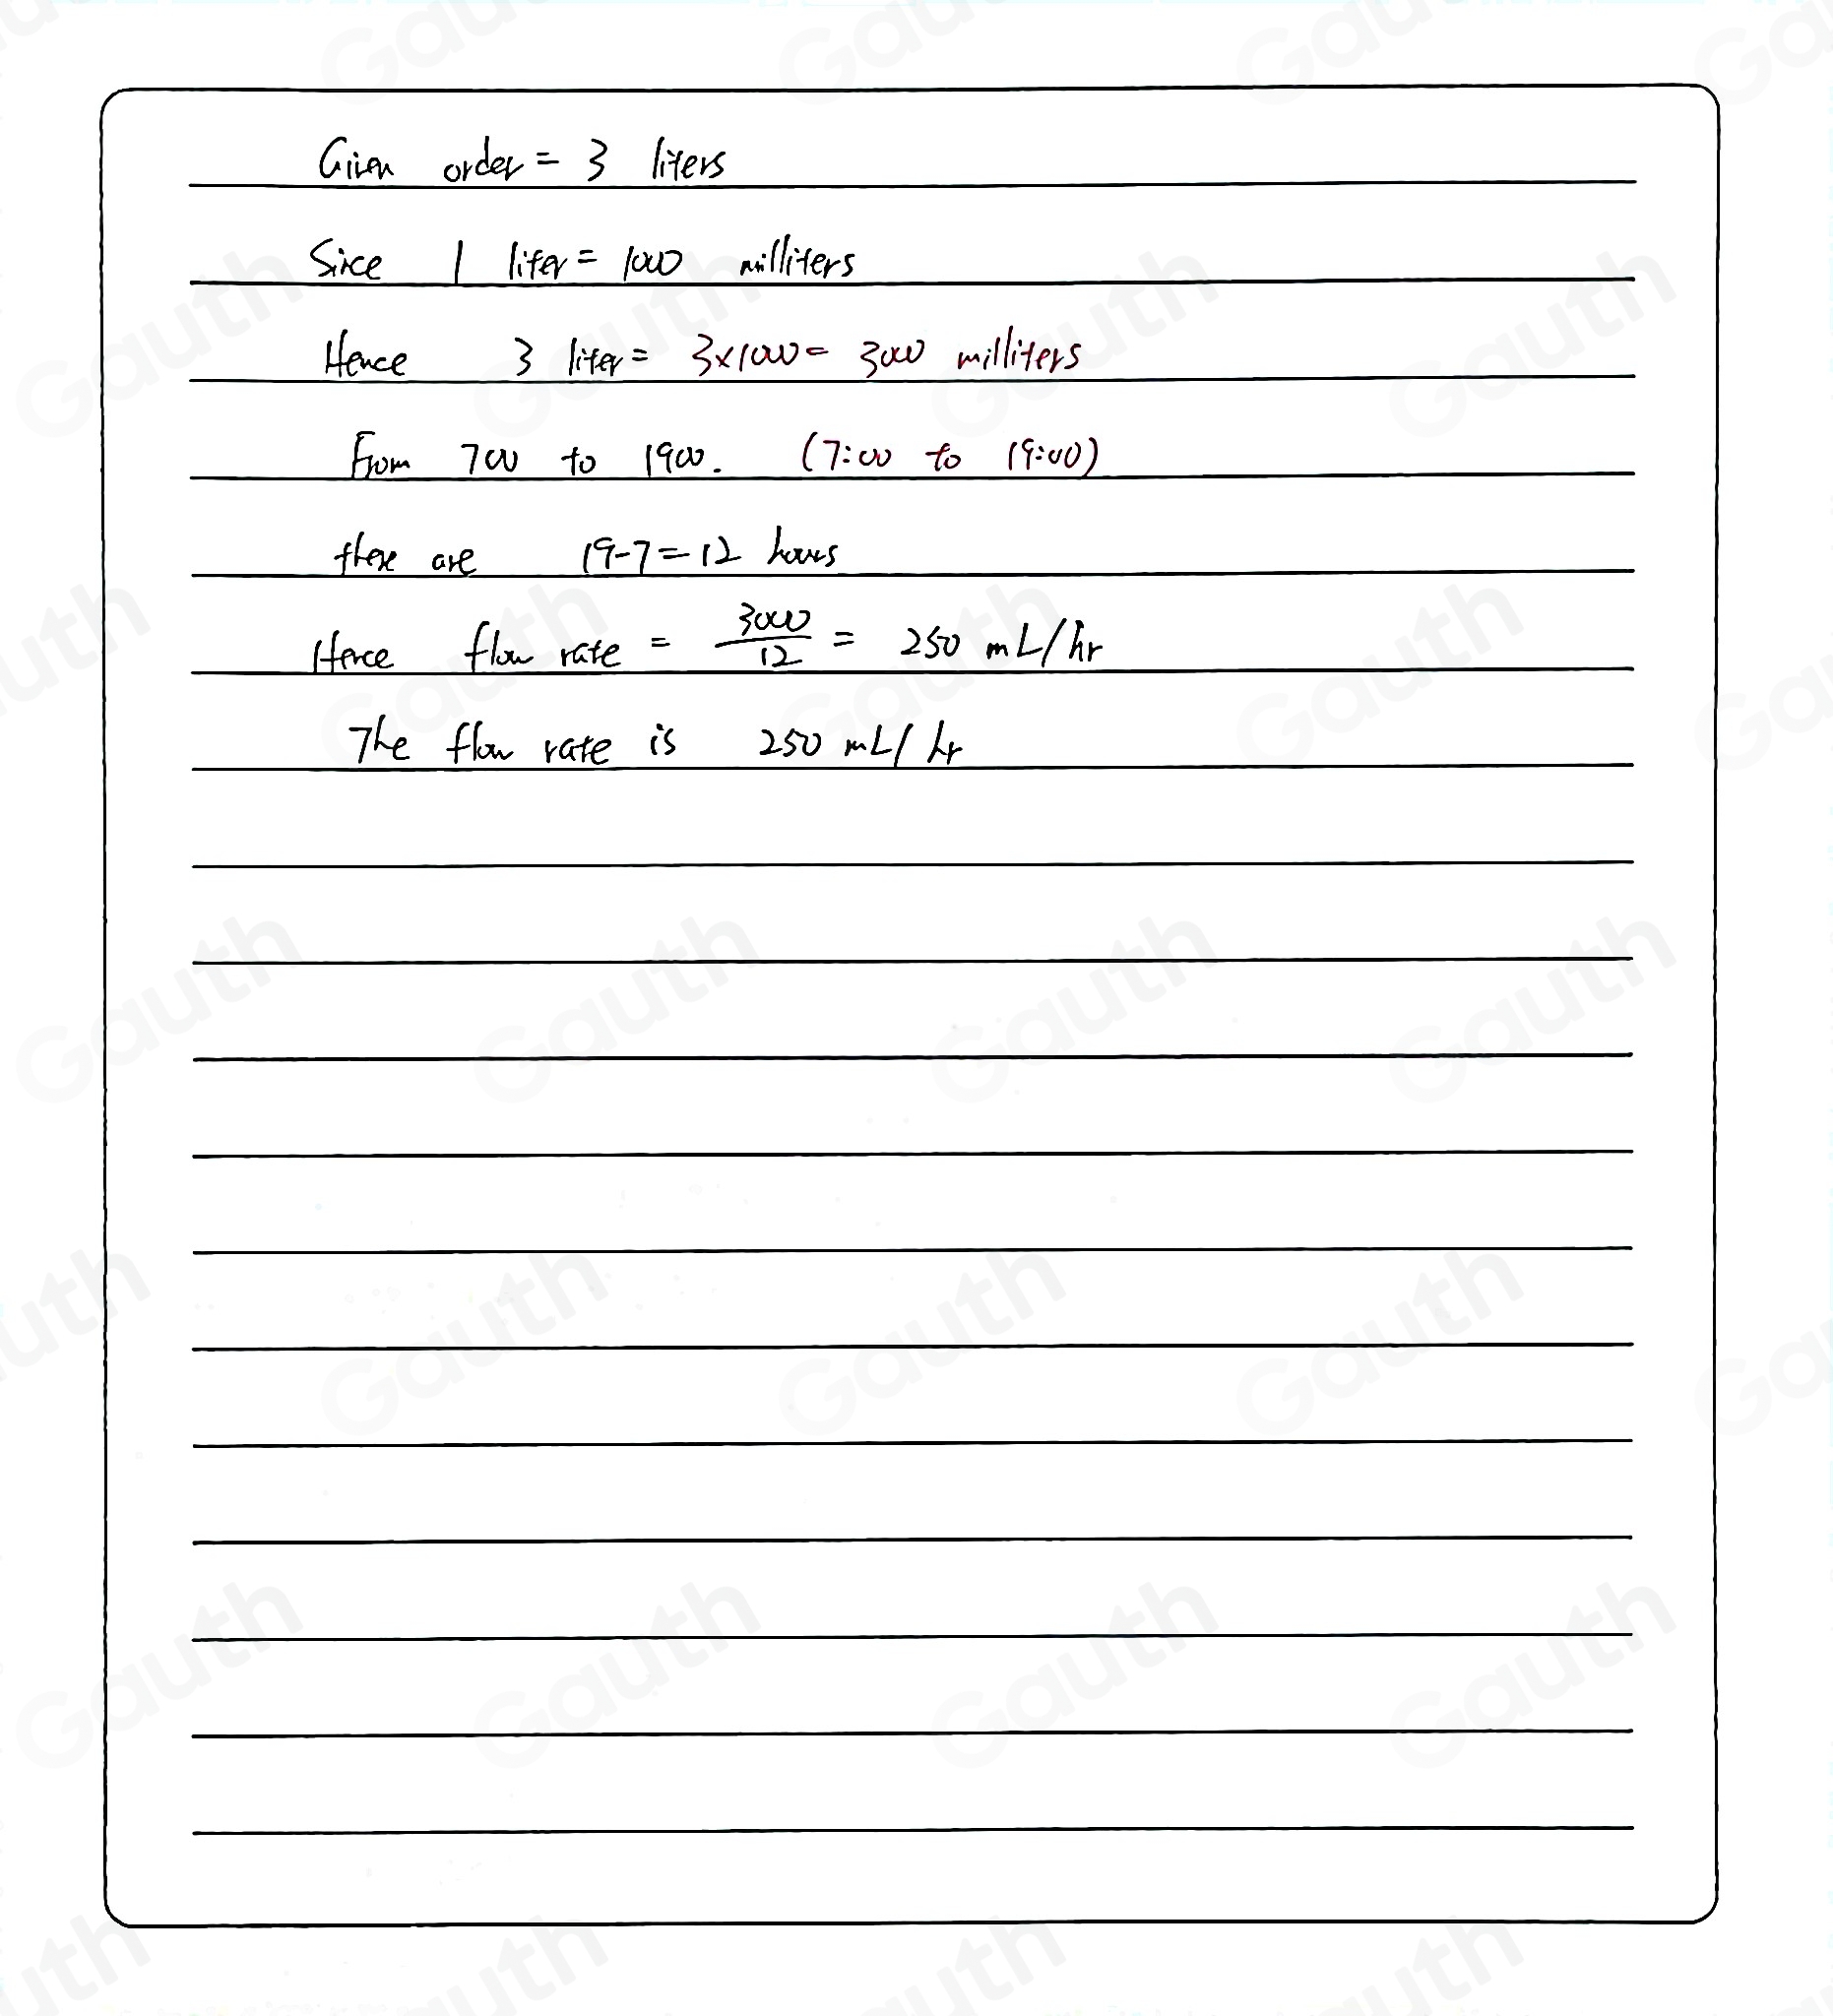 Given order = 3 liters
Since 1 liter = 1000 milliters
Hence 3 liter = 3×1000 = 3000 milliters
From 700 to 1900. (7:00 to 19:00)
there are 19-7=12 hours
Hence flow rate = 3000/12 = 250 mL/hr
The flow rate is 250 mL/hr
Gauth